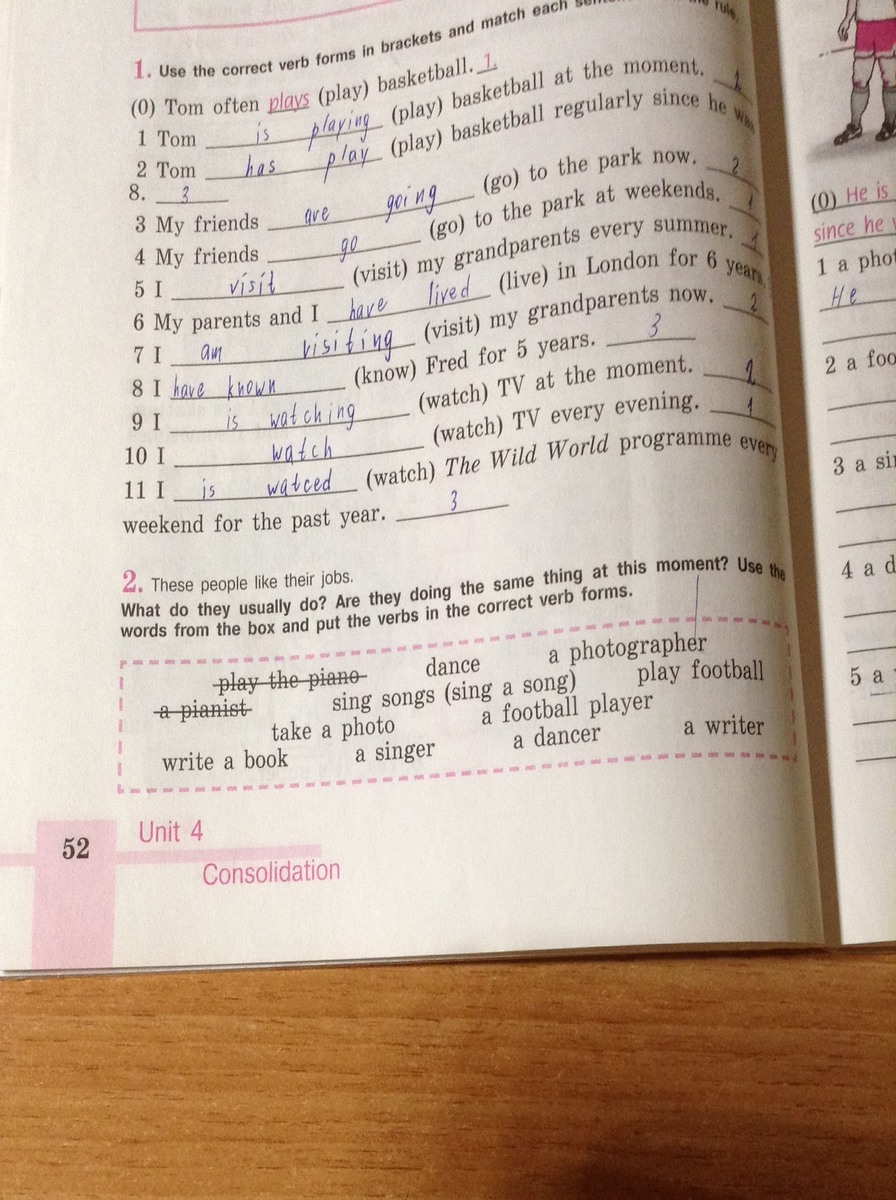 1. Use the correct verb forms in brackets and match each rule.
(0) Tom often plays (play) basketball. 1.
1 Tom is playing (play) basketball at the moment. 2
2 Tom has play (play) basketball regularly since he was
8. 3
3 My friends are going (go) to the park now. 2
4 My friends go (go) to the park at weekends. 1
5 I visit (visit) my grandparents every summer. 1
6 My parents and I have lived (live) in London for 6 years
7 I am visiting (visit) my grandparents now. 2
8 I have known (know) Fred for 5 years. 3
9 I is watching (watch) TV at the moment. 2
10 I watch (watch) TV every evening. 1
11 I is watced (watch) The Wild World programme every
weekend for the past year. 3
2. These people like their jobs.
What do they usually do? Are they doing the same thing at this moment? Use the
words from the box and put the verbs in the correct verb forms.
play the piano dance a photographer
a pianist sing songs (sing a song) play football
take a photo a football player
write a book a singer a dancer a writer
52
Unit 4
Consolidation
(0) He is
since he
1 a phot
He
2 a foo
3 a si
4 a d
5 a